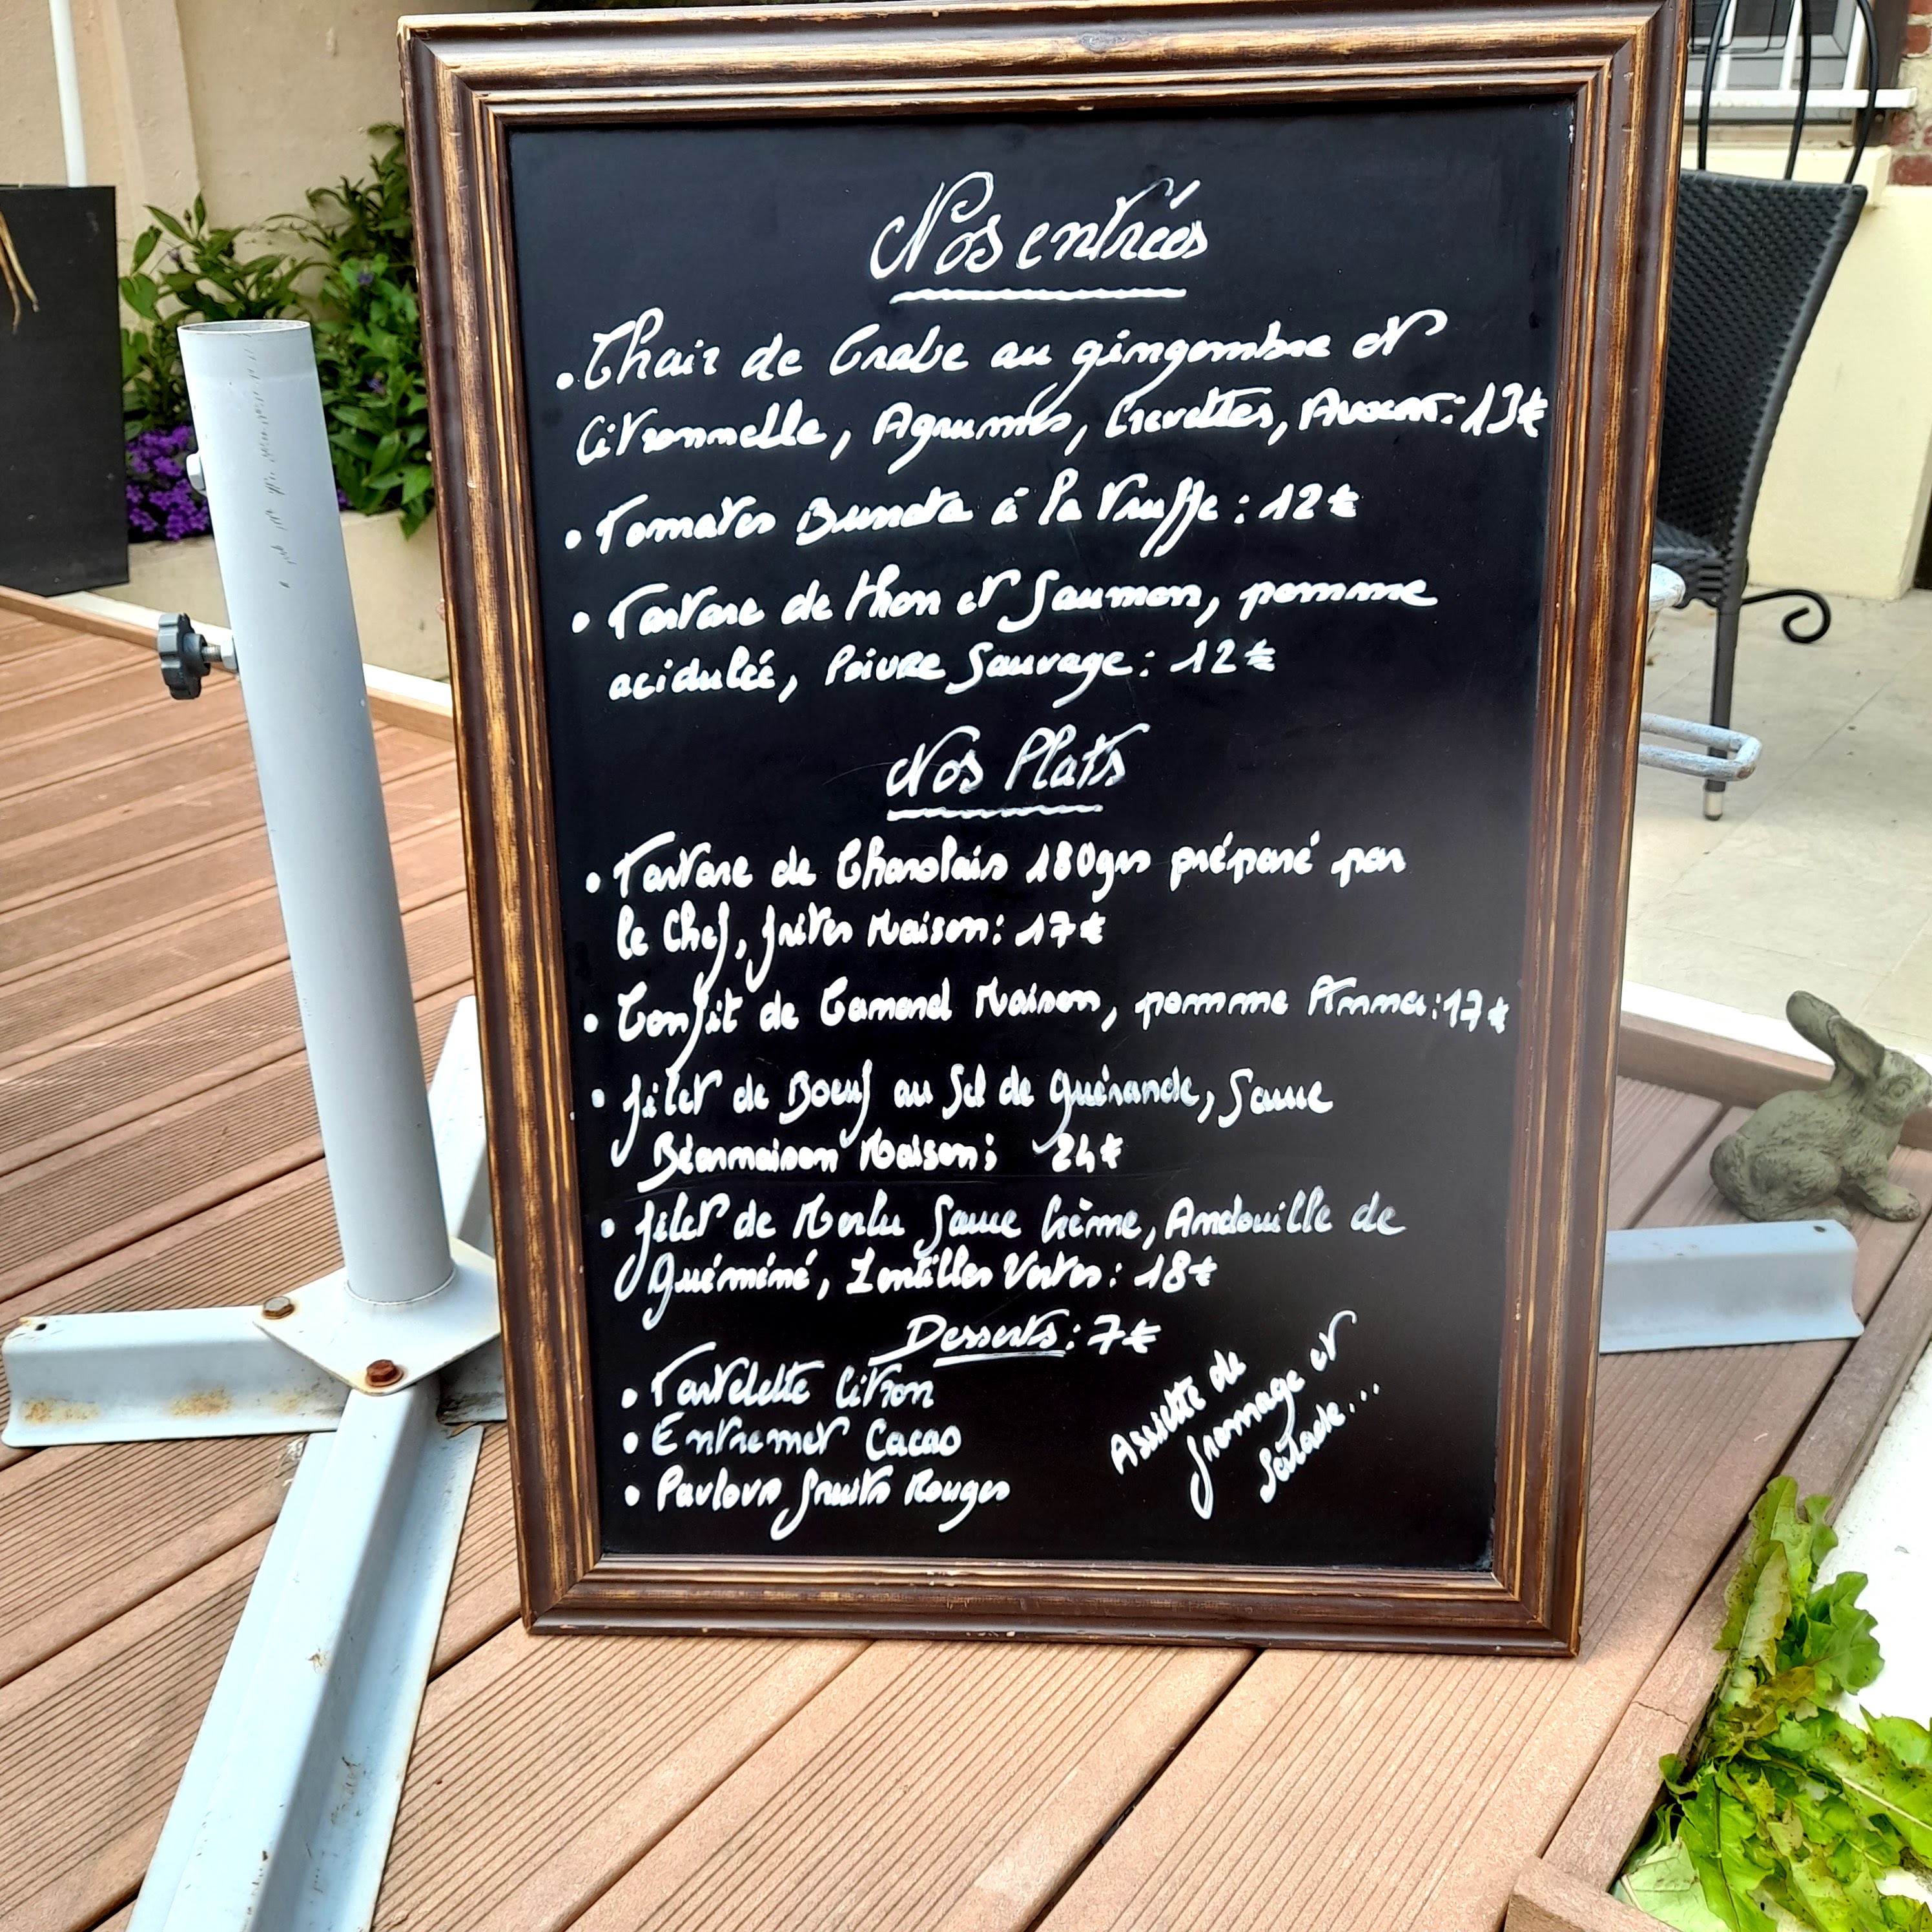 Nos entrées
• Chair de Crabe au gingembre et
Citronnelle, Agrumes, Crevettes, Avocat : 13€
• Tomates Burrata à la truffe : 12€
• Tartare de thon et Saumon, pomme
acidulée, Poivre Sauvage : 12€
Nos Plats
• Tartare de Charolais 180grs préparé par
le Chef, frites Maison : 17€
• Confit de Canard Maison, pomme Anna : 17€
• filet de Boeuf au Sel de Guérande, Sauce
Béarnaison Maison ; 24€
• filet de Merlu Sauce Crème, Andouille de
Guéméné, Lentilles Vertes : 18€
Desserts : 7€
• Tartelette Citron
• Entremet Cacao
• Pavlova fruits Rouges
Assiette de
fromage et
Salade...